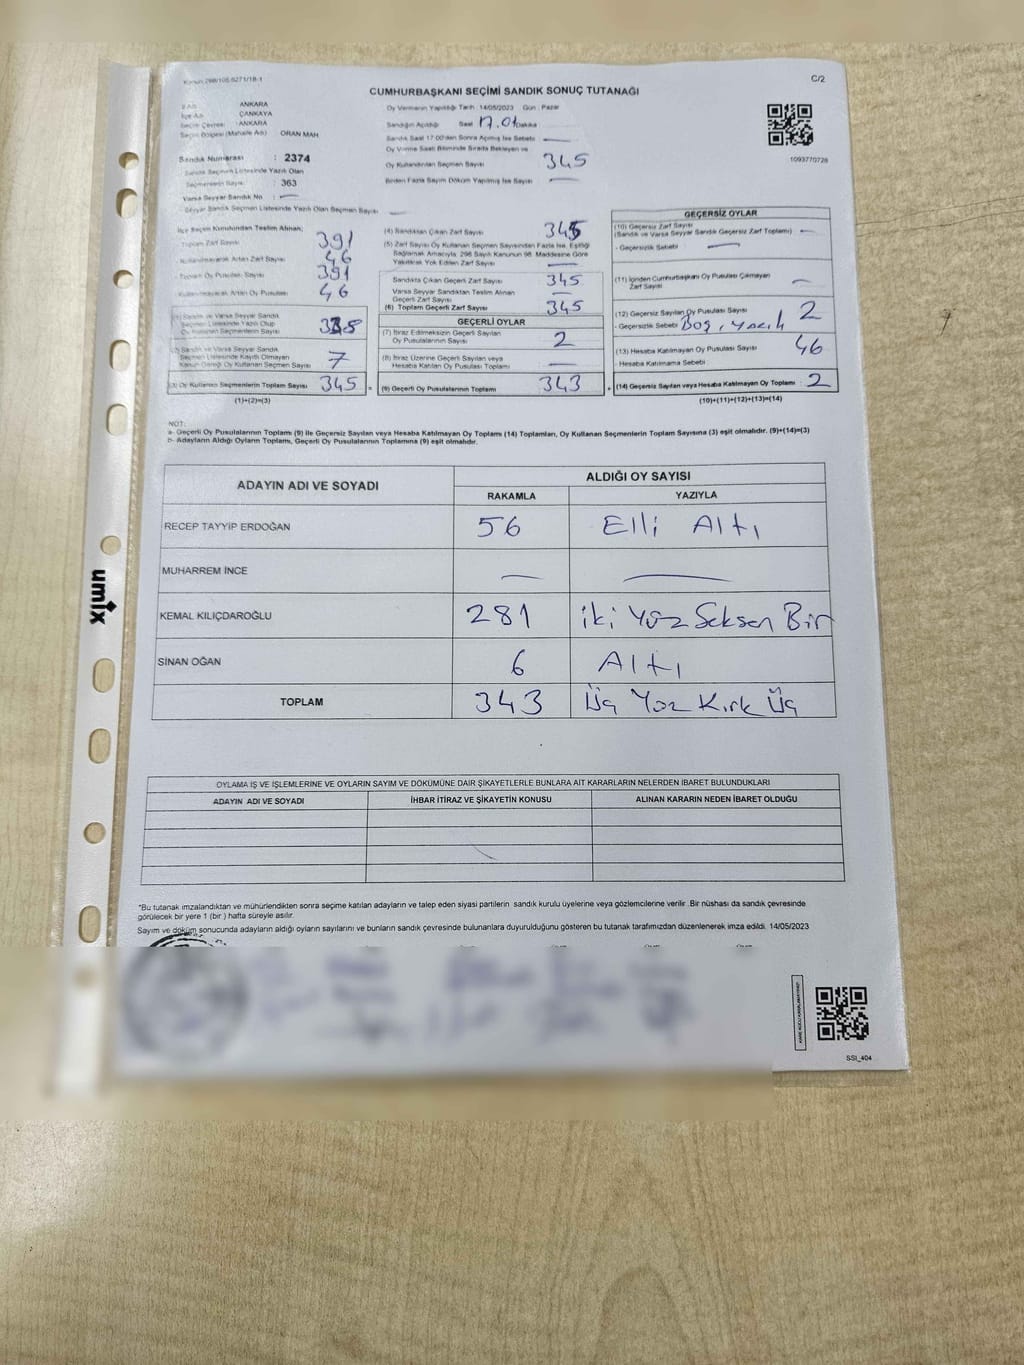 Kanun:298/105-6271/18-1
C/2
CUMHURBAŞKANI SEÇİMİ SANDIK SONUÇ TUTANAĞI
İl Adı ANKARA
İlçe Adı ÇANKAYA
Seçim Çevresi : ANKARA
Seçim Bölgesi (Mahalle Adı) ORAN MAH
Sandık Numarası : 2374
Sandık Seçmen Listesinde Yazılı Olan
Seçmenlerin Sayısı : 363
Varsa Seyyar Sandık No : —
Seyyar Sandık Seçmen Listesinde Yazılı Olan Seçmen Sayısı —
Oy Vermenin Yapıldığı Tarih : 14/05/2023 Gün : Pazar
Sandığın Açıldığı Saat 17.01 Dakika
Sandık Saat 17:00'den Sonra Açılmış İse Sebebi —
Oy Verme Saati Bitiminde Sırada Bekleyen ve
Oy Kullandırılan Seçmen Sayısı 345
Birden Fazla Sayım Döküm Yapılmış İse Sayısı —
1093770728
İlçe Seçim Kurulundan Teslim Alınan;
Toplam Zarf Sayısı 391
Kullanılmayarak Artan Zarf Sayısı 46
Toplam Oy Pusulası Sayısı 391
Kullanılmayarak Artan Oy Pusulası 46
(1) Sandık ve Varsa Seyyar Sandık
Seçmen Listesinde Yazılı Olup
Oy Kullanan Seçmenlerin Sayısı
(2) Sandık ve Varsa Seyyar Sandık
Seçmen Listesinde Kayıtlı Olmayan
Kanun Gereği Oy Kullanan Seçmen Sayısı 7
(3) Oy Kullanan Seçmenlerin Toplam Sayısı 345 =
(1)+(2)=(3)
(4) Sandıktan Çıkan Zarf Sayısı 345
(5) Zarf Sayısı Oy Kullanan Seçmen Sayısından Fazla İse, Eşitliği
Sağlamak Amacıyla, 298 Sayılı Kanunun 98. Maddesine Göre
Yakılarak Yok Edilen Zarf Sayısı —
Sandıkta Çıkan Geçerli Zarf Sayısı 345
Varsa Seyyar Sandıktan Teslim Alınan
Geçerli Zarf Sayısı —
(6) Toplam Geçerli Zarf Sayısı 345
GEÇERLİ OYLAR
(7) İtiraz Edilmeksizin Geçerli Sayılan
Oy Pusulasının Sayısı 2
(8) İtiraz Üzerine Geçerli Sayılan veya
Hesaba Katılan Oy Pusulası Toplamı —
(9) Geçerli Oy Pusulalarının Toplamı 343 +
GEÇERSİZ OYLAR
(10) Geçersiz Zarf Sayısı
(Sandık ve Varsa Seyyar Sandık Geçersiz Zarf Toplamı) —
- Geçersizlik Sebebi —
(11) İçinden Cumhurbaşkanı Oy Pusulası Çıkmayan
Zarf Sayısı —
(12) Geçersiz Sayılan Oy Pusulası Sayısı 2
- Geçersizlik Sebebi Boş, yazılı
(13) Hesaba Katılmayan Oy Pusulası Sayısı 46
- Hesaba Katılmama Sebebi
(14) Geçersiz Sayılan veya Hesaba Katılmayan Oy Toplamı : 2
(10)+(11)+(12)+(13)=(14)
NOT:
a- Geçerli Oy Pusulalarının Toplamı (9) ile Geçersiz Sayılan veya Hesaba Katılmayan Oy Toplamı (14) Toplamları, Oy Kullanan Seçmenlerin Toplam Sayısına (3) eşit olmalıdır. (9)+(14)=(3)
b- Adayların Aldığı Oyların Toplamı, Geçerli Oy Pusulalarının Toplamına (9) eşit olmalıdır.
ADAYIN ADI VE SOYADI ALDIĞI OY SAYISI
RAKAMLA YAZIYLA
RECEP TAYYİP ERDOĞAN 56 Elli Altı
MUHARREM İNCE — —
KEMAL KILIÇDAROĞLU 281 iki Yüz Seksen Bir
SİNAN OĞAN 6 Altı
TOPLAM 343 Üç Yüz Kırk Üç
OYLAMA İŞ VE İŞLEMLERİNE VE OYLARIN SAYIM VE DÖKÜMÜNE DAİR ŞİKAYETLERLE BUNLARA AİT KARARLARIN NELERDEN İBARET BULUNDUKLARI
ADAYIN ADI VE SOYADI İHBAR İTİRAZ VE ŞİKAYETİN KONUSU ALINAN KARARIN NEDEN İBARET OLDUĞU
*Bu tutanak imzalandıktan ve mühürlendikten sonra seçime katılan adayların ve talep eden siyasi partilerin sandık kurulu üyelerine veya gözlemcilerine verilir. Bir nüshası da sandık çevresinde
görülecek bir yere 1 (bir ) hafta süreyle asılır.
Sayım ve döküm sonucunda adayların aldığı oyların sayılarını ve bunların sandık çevresinde bulunanlara duyurulduğunu gösteren bu tutanak tarafımızdan düzenlenerek imza edildi. 14/05/2023
SSI_404
umix